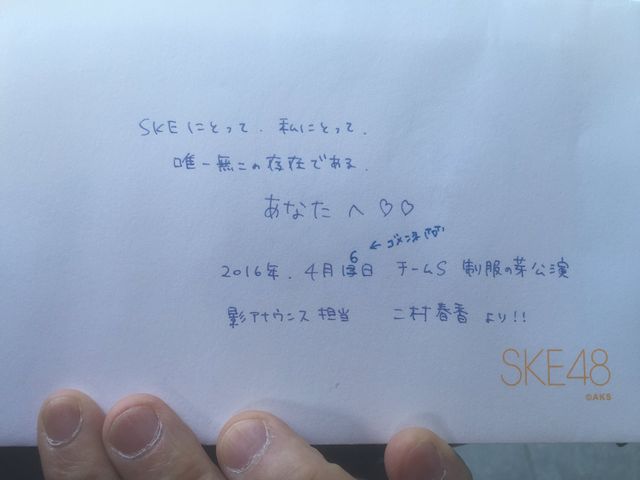 SKEにとって. 私にとって.
唯一無二の存在である.
あなたへ♡♡
2016年. 4月16日 チームS 制服の芽公演
影アナウンス担当 二村春香より!!
SKE48
©AKS